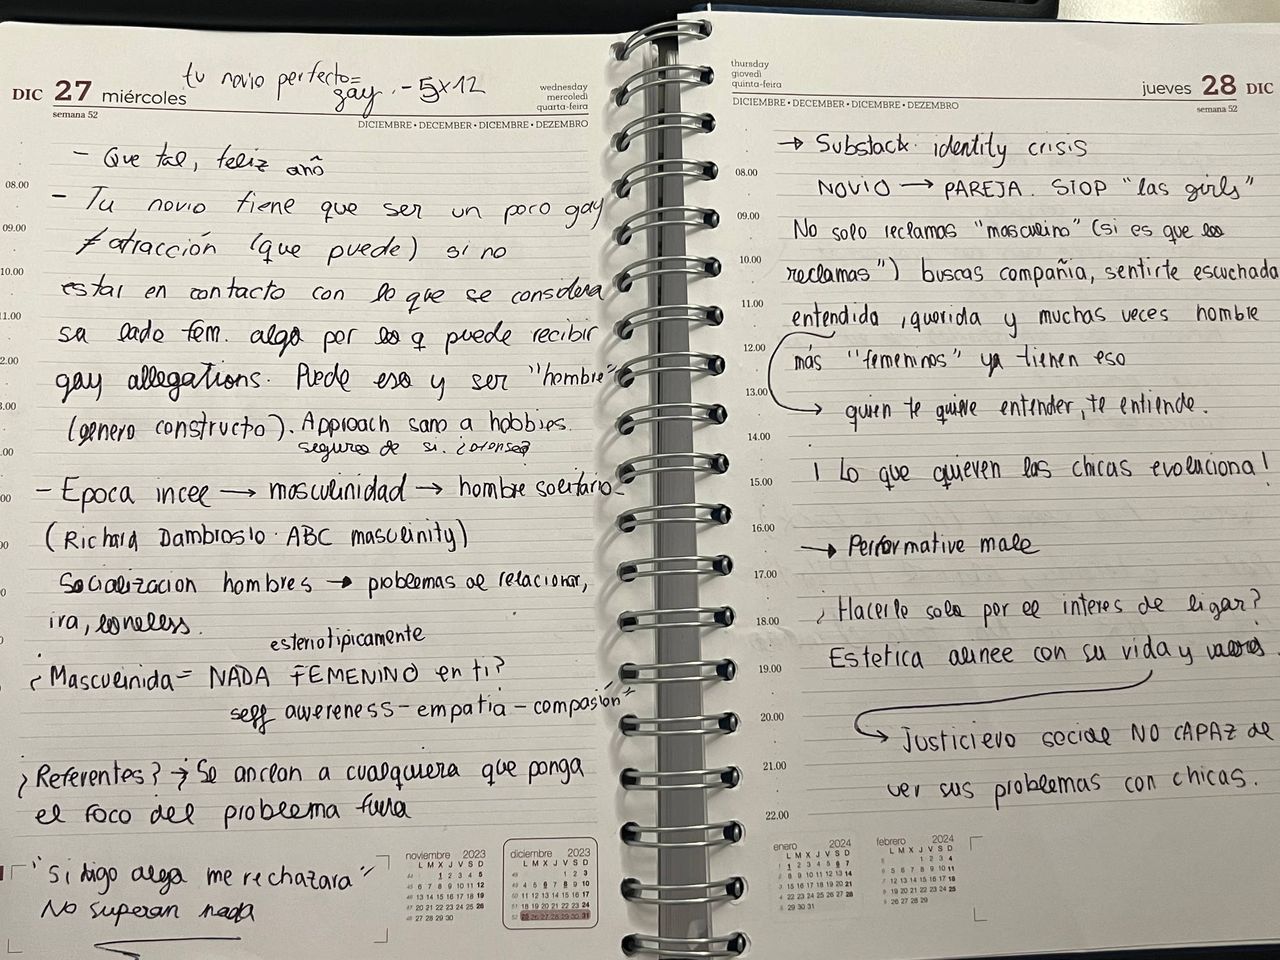 tu novio perfecto=
gay. - 5x12
DIC 27 miércoles
semana 52
wednesday
mercoledì
quarta-feira
DICIEMBRE • DECEMBER • DICEMBRE • DEZEMBRO
- Que tal, feliz año
08.00
- Tu novio tiene que ser un poco gay
09.00
≠ atracción (que puede) si no
10.00
estar en contacto con lo que se considera
11.00
su lado fem. algo por lo q puede recibir
2.00
gay allegations. Puede eso y ser "hombre"
3.00
(genero constructo). Approach sano a hobbies.
.00
seguros de si.
00
- Epoca incel → masculinidad → hombre solitario
00
(Richard Dambrosio · ABC masculinity)
0
Socialización hombres → problemas de relacionar,
ira, loneless.
esteriotipicamente
¿Masculinida = NADA FEMENINO en ti?
self awereness - empatia - compasión"
¿Referentes? → Se anclan a cualquiera que ponga
el foco del problema fuera
"Si digo algo me rechazara"
No superan nada
noviembre 2023
L M X J V S D
44 1 2 3 4 5
45 6 7 8 9 10 11 12
46 13 14 15 16 17 18 19
47 20 21 22 23 24 25 26
48 27 28 29 30
diciembre 2023
L M X J V S D
48 1 2 3
49 4 5 6 7 8 9 10
50 11 12 13 14 15 16 17
51 18 19 20 21 22 23 24
52 25 26 27 28 29 30 31
thursday
giovedì
quinta-feira
jueves 28 DIC
semana 52
DICIEMBRE • DECEMBER • DICEMBRE • DEZEMBRO
→ Substack. identity crisis
08.00
NOVIO → PAREJA. STOP "las girls"
09.00
No solo reclamas "masculino" (si es que lo
10.00
reclamas") buscas compañia, sentirte escuchada
11.00
entendida, querida y muchas veces hombre
12.00
más "femeninos" ya tienen eso
13.00
→ quien te quiere entender, te entiende.
14.00
¡Lo que quieren las chicas evoluciona!
15.00
16.00
→ Performative male
17.00
¿Hacerlo solo por el interes de ligar?
18.00
Estetica alinee con su vida y valores.
19.00
20.00
→ Justiciero social NO CAPAZ de
21.00
ver sus problemas con chicas.
22.00
enero 2024
L M X J V S D
1 1 2 3 4 5 6 7
2 8 9 10 11 12 13 14
3 15 16 17 18 19 20 21
4 22 23 24 25 26 27 28
5 29 30 31
febrero 2024
L M X J V S D
5 1 2 3 4
6 5 6 7 8 9 10 11
7 12 13 14 15 16 17 18
8 19 20 21 22 23 24 25
9 26 27 28 29